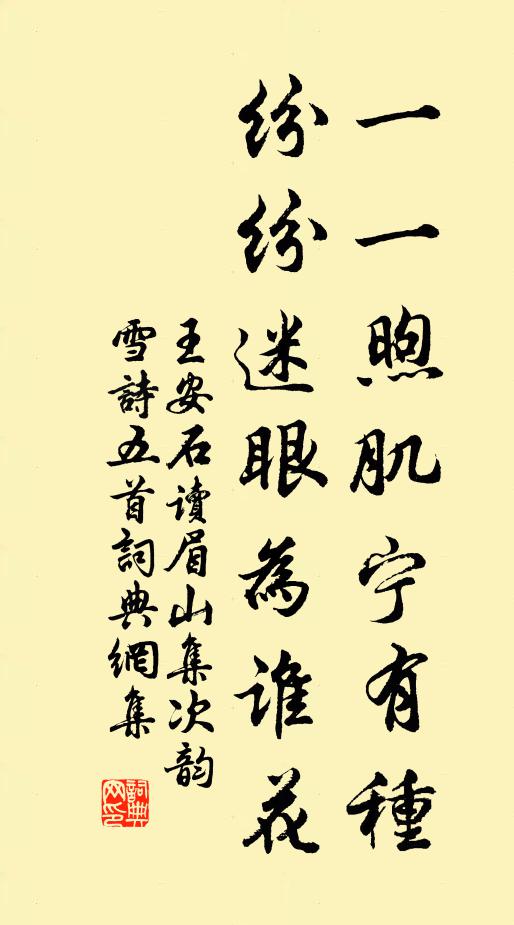 一一煦肌宁有種
紛紛迷眼為誰花
王安石讀眉山集次韵
雪詩五首詞典網集
詞典
网印